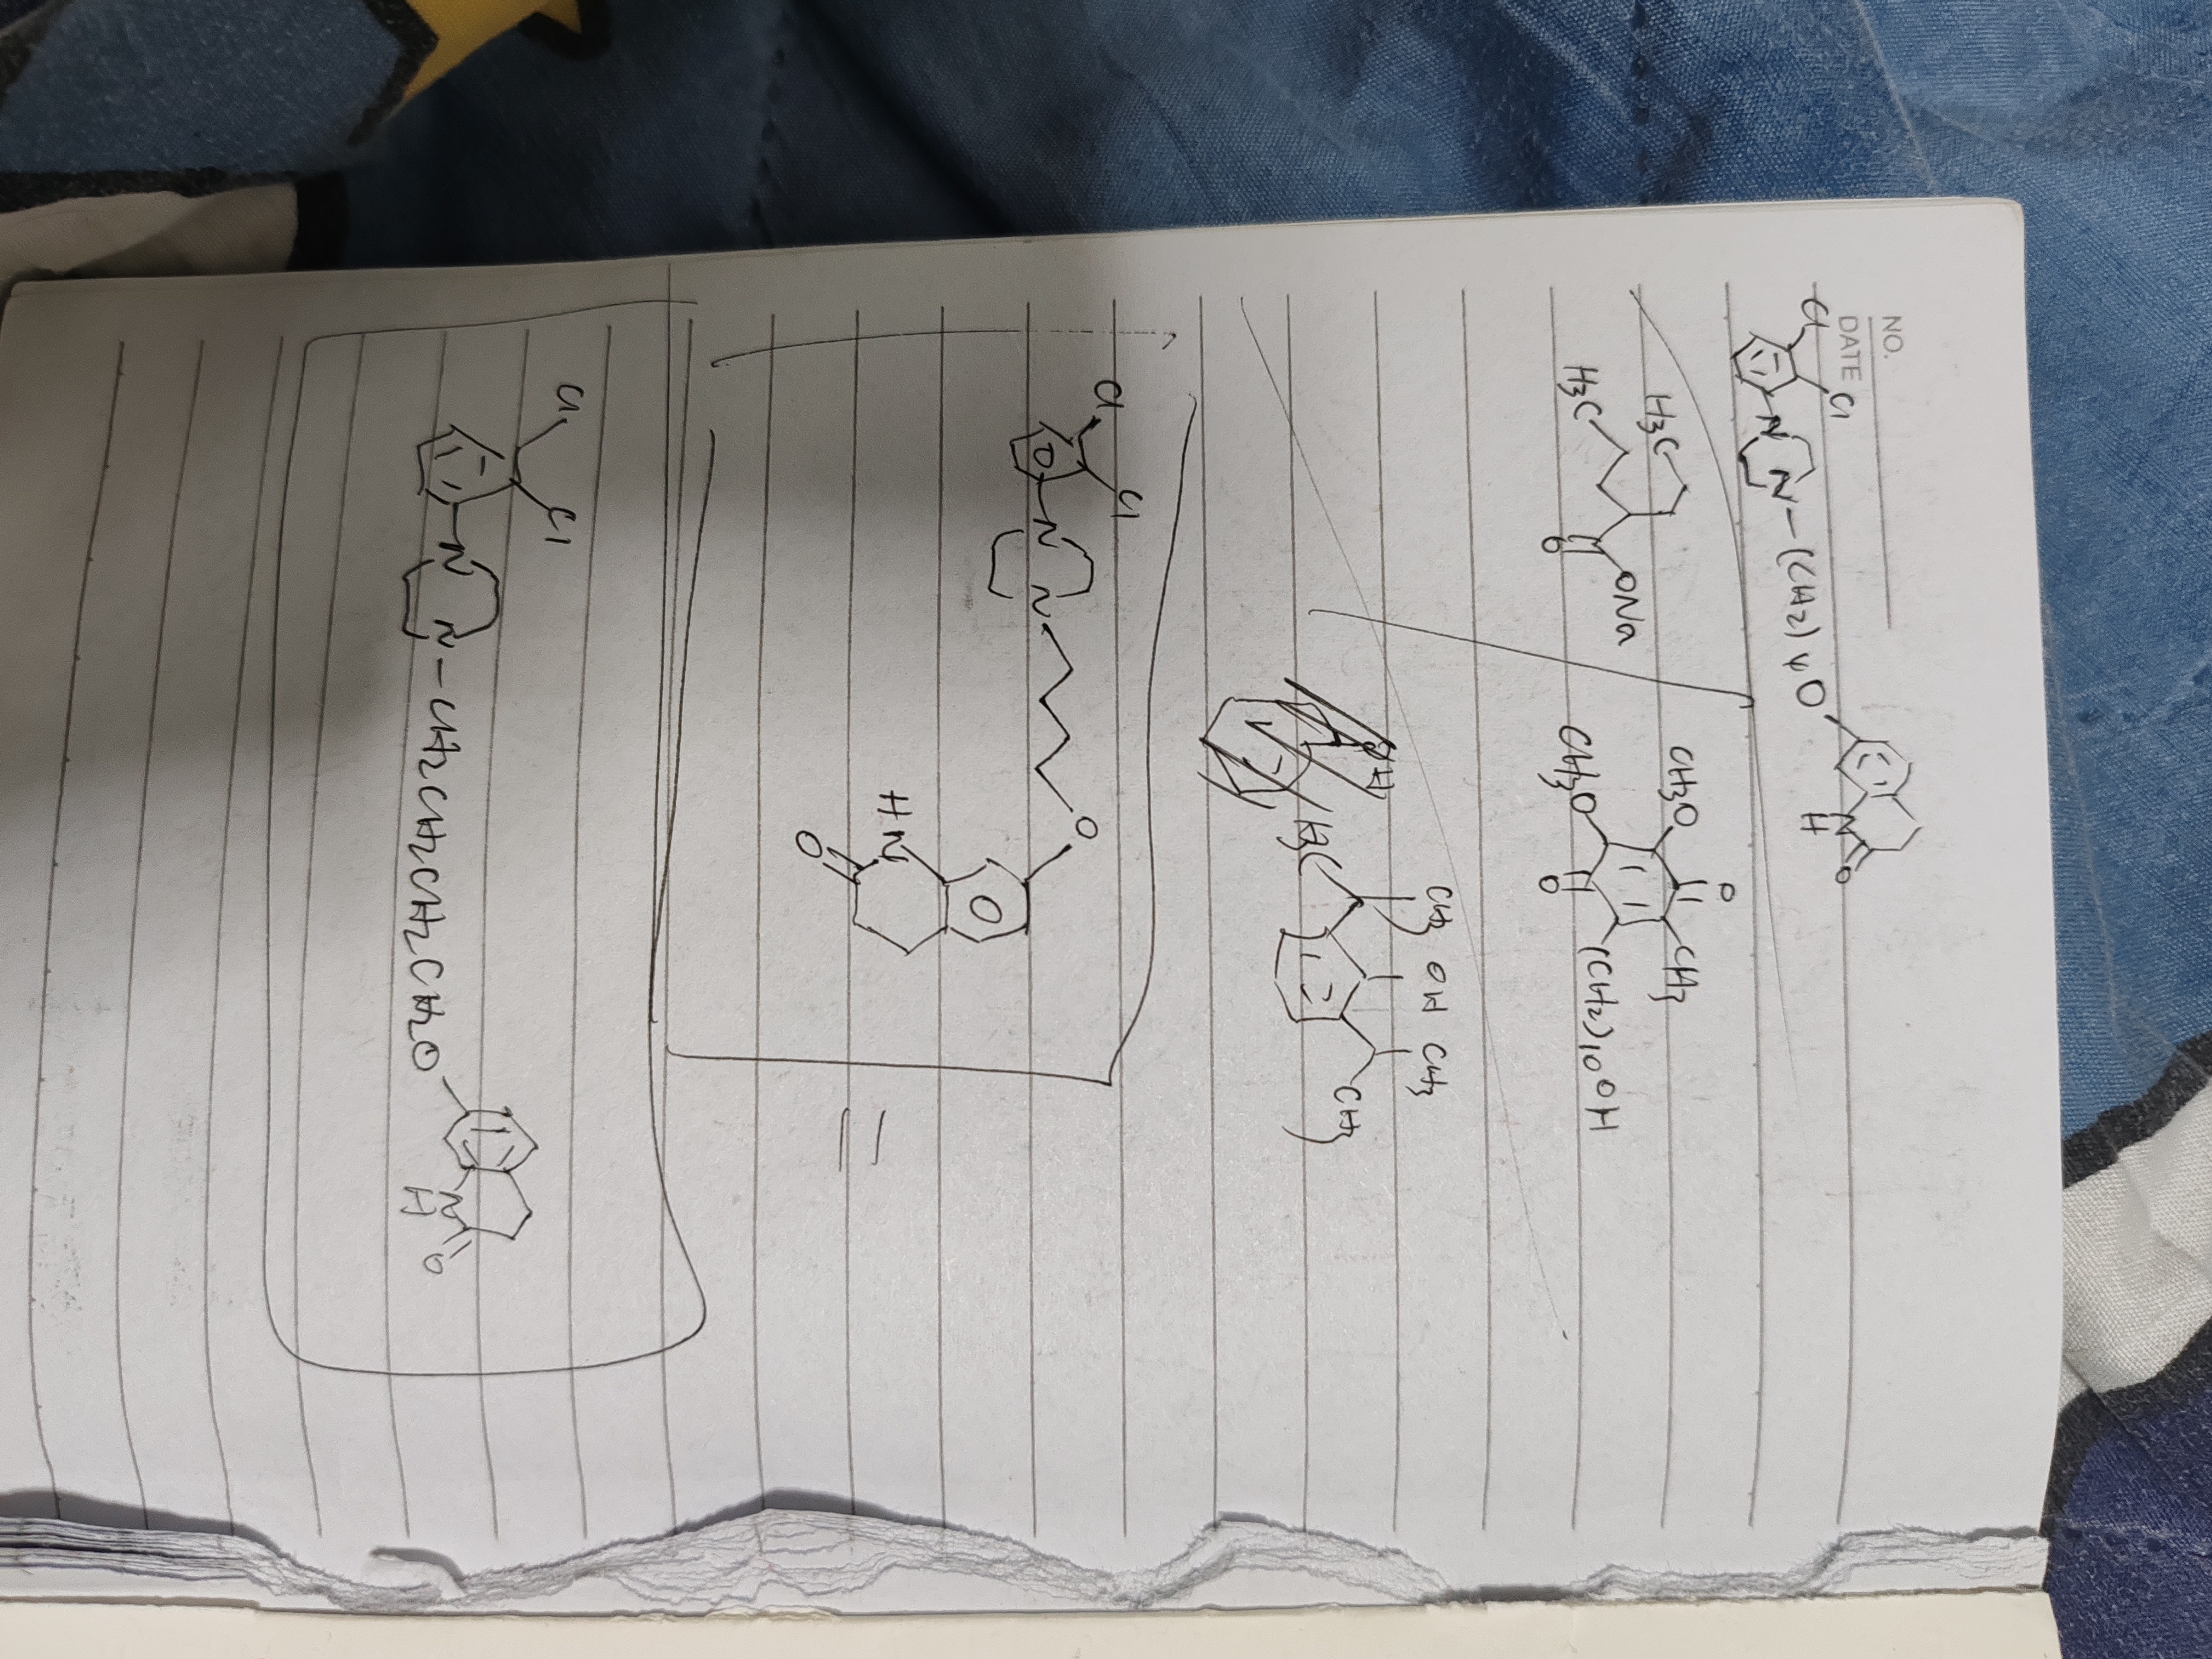 NO.
DATE
Cl
Cl
N
N-(CH2)4O
N
H
O
H3C
H3C
ONa
O
CH3O
CH3O
O
O
CH3
(CH2)10OH
H3C
CH3
OH
CH3
CH3
Cl
Cl
N
N
O
HN
O
Cl
Cl
N
N-CH2CH2CH2CH2O
N
H
O